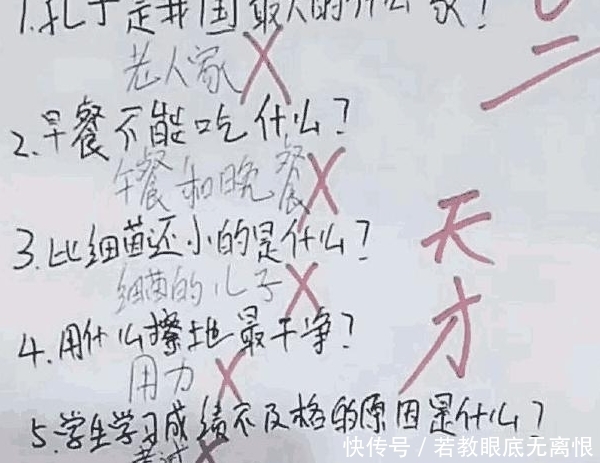 1.孔子是我国最大的什么家？
老人家
2.早餐不能吃什么？
午餐和晚餐
3.比细菌还小的是什么？
细菌的儿子
天才
4.用什么擦地最干净？
用力
5.学生学习成绩不及格的原因是什么？
考试
快传号/若教眼底无离恨